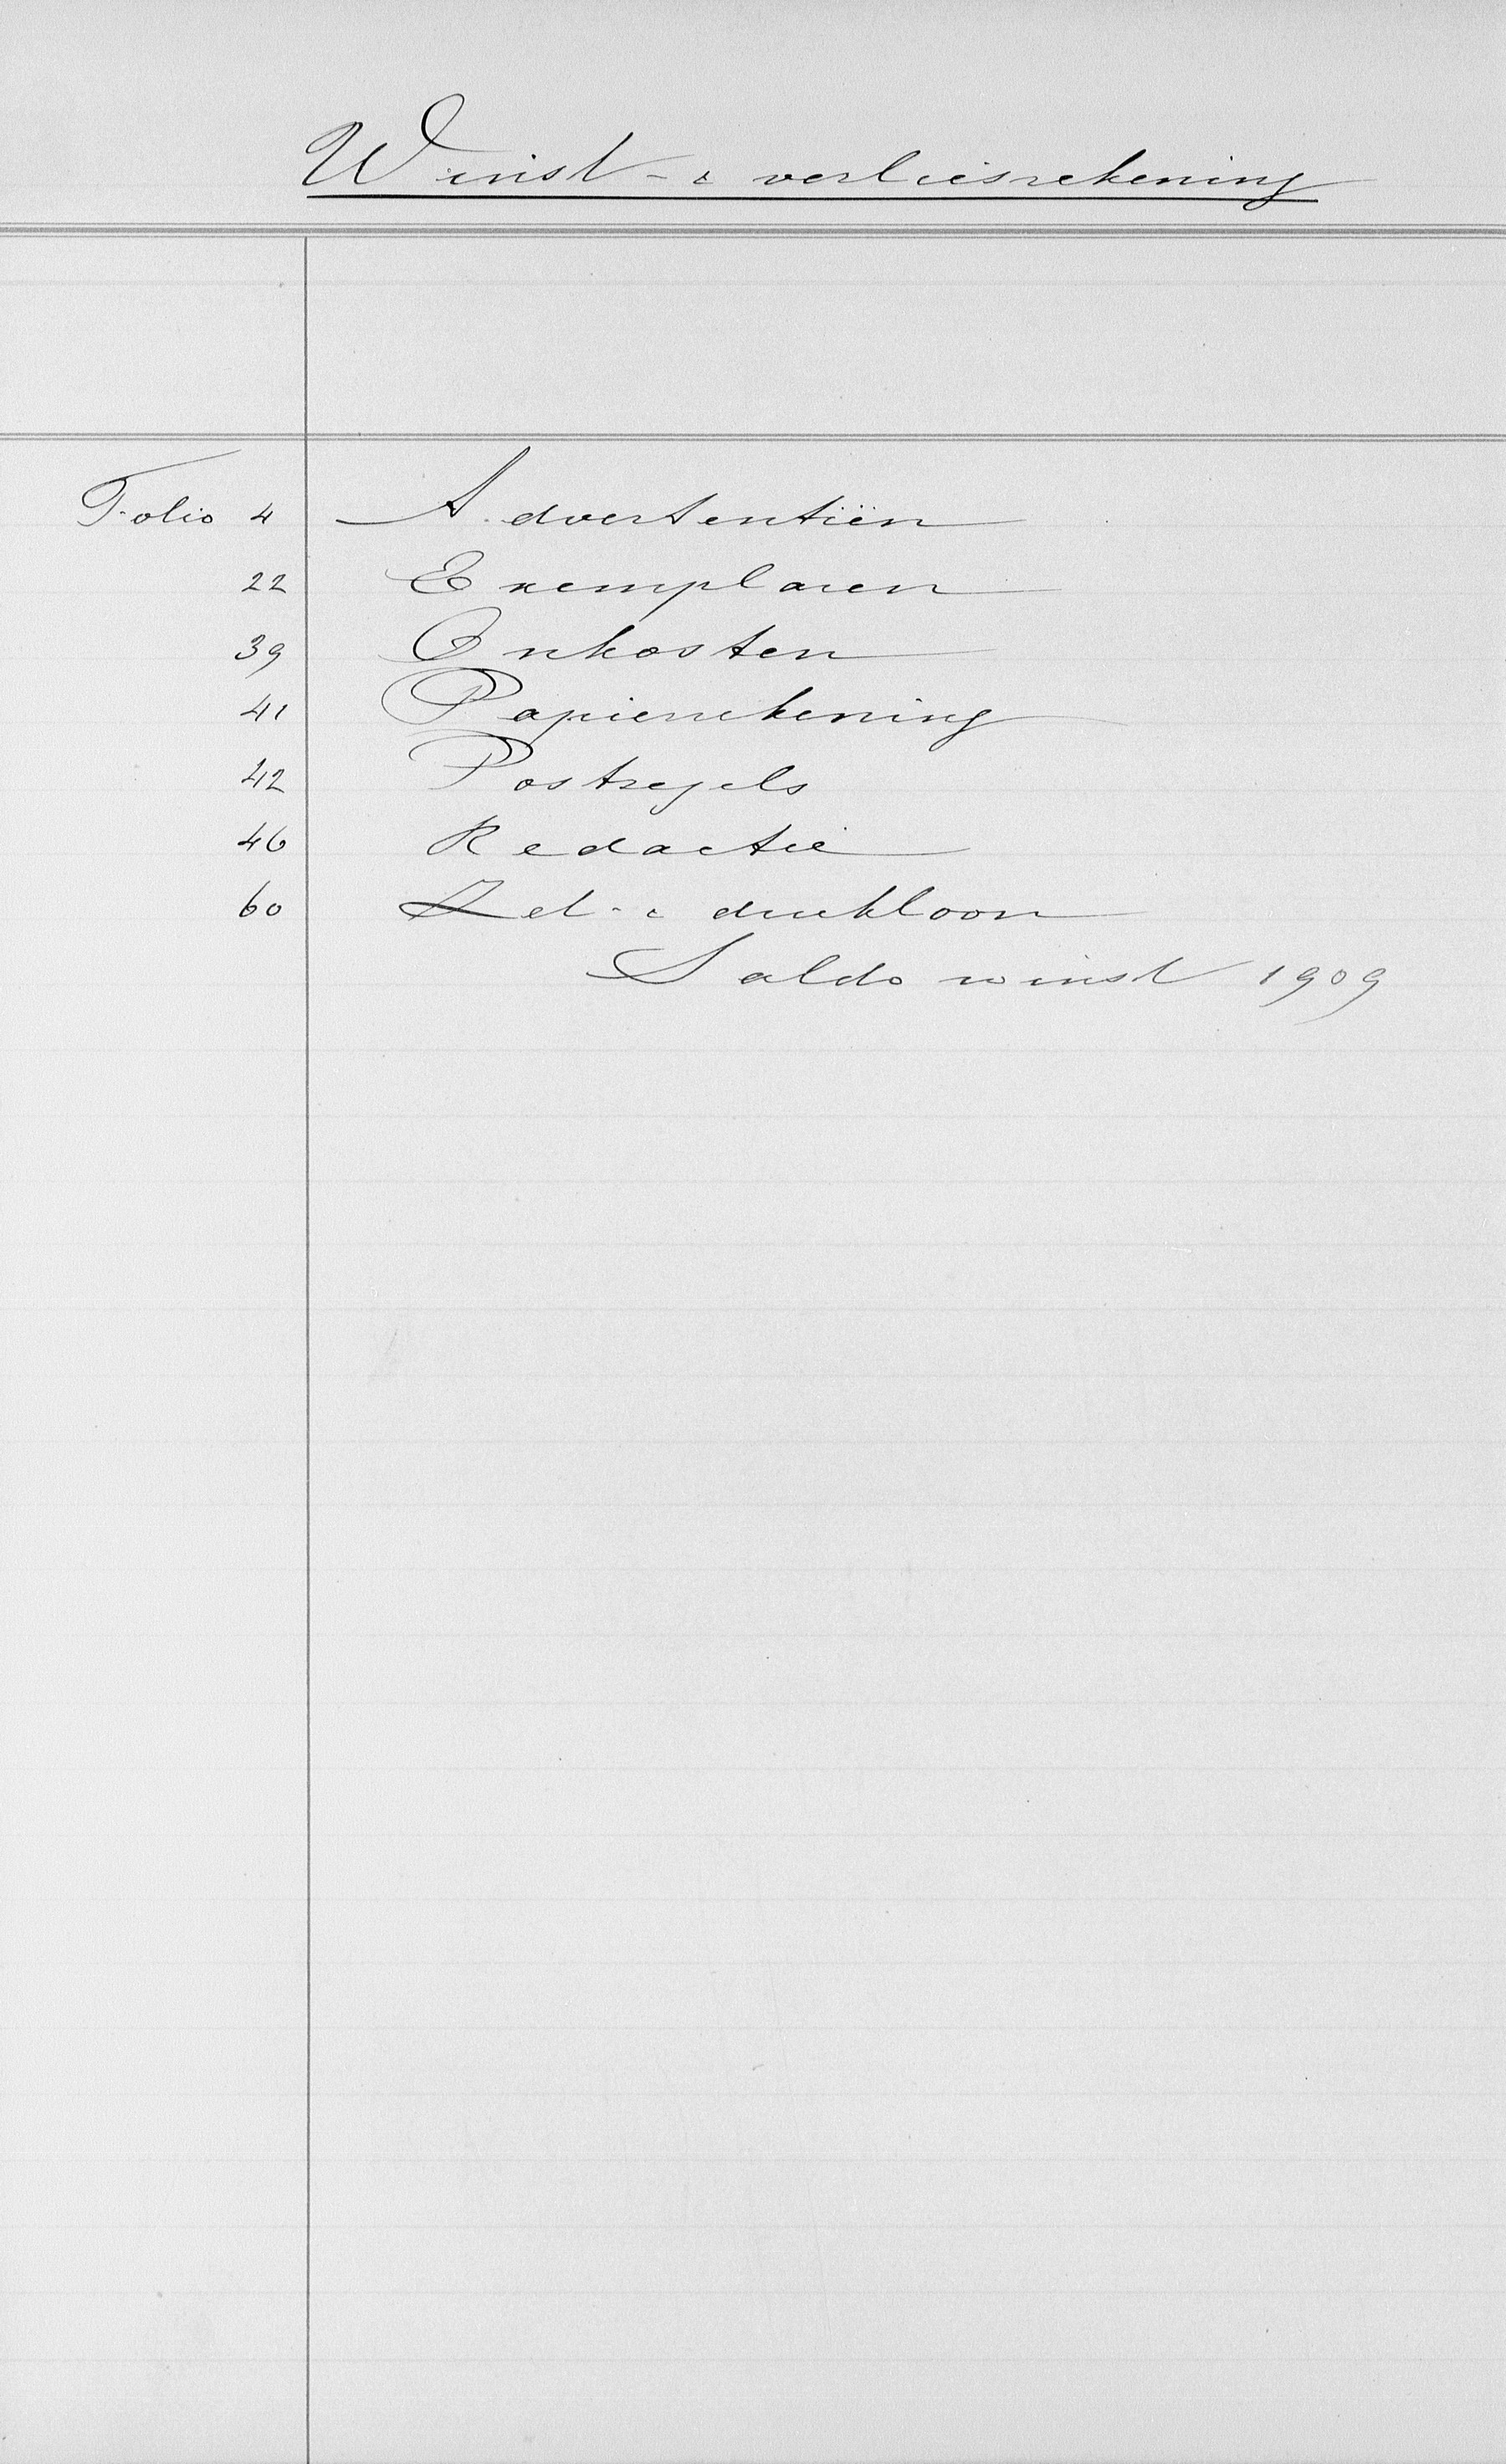 Winst- & verliesrekening
Folio 4 Advertentiën
22 Exemplaren
39 Onkosten
41 Papierrekening
42 Postzegels
46 Redactie
60 Zet- & drukloon
Saldo winst 1909